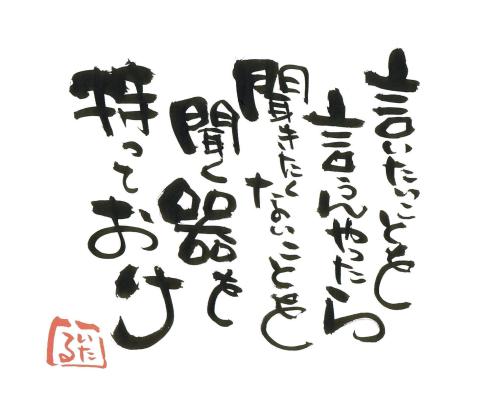 言いたいことを
言うんやったら
聞きたくないことを
聞く器を
持っておけ
いたる